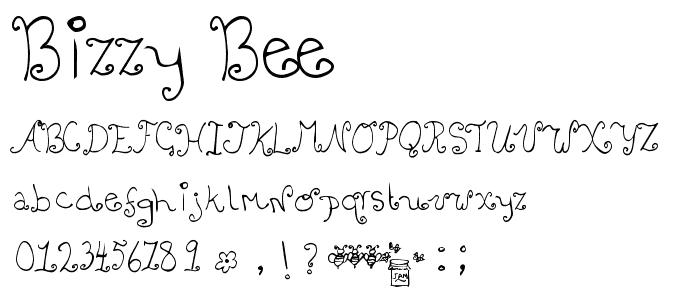 Bizzy Bee
ABCDEFGHIJKLMNOPQRSTUVWXYZ
abcdefghijklmnopqrstuvwxyz
0123456789 , ! ? : ;
JAM